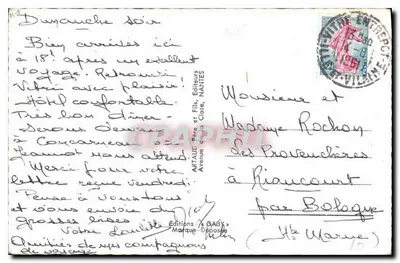 Dimanche soir
Bien arrivées ici
à 18h après un excellent
voyage. Retrouvé
Vitré avec plaisir.
Hôtel confortable.
Très bon dîner
Serons demain
à Concarneau où
Jeannot nous attend.
Merci pour votre
lettre reçue vendredi.
Pense à vous tous
et vous envoie de
grosses bises
Votre
Amitiés de mes compagnons
de voyage
ARTAUD Père et Fils, Editeurs
Avenue du Close, NANTES
Editions "GABY"
Marque Déposée
VITRE ENTREPOT
13-30
1961
ILLE-ET-VILAINE
Monsieur et
Madame Rochon
des Provenchères
à Riaucourt
par Bologne
(Hte Marne)